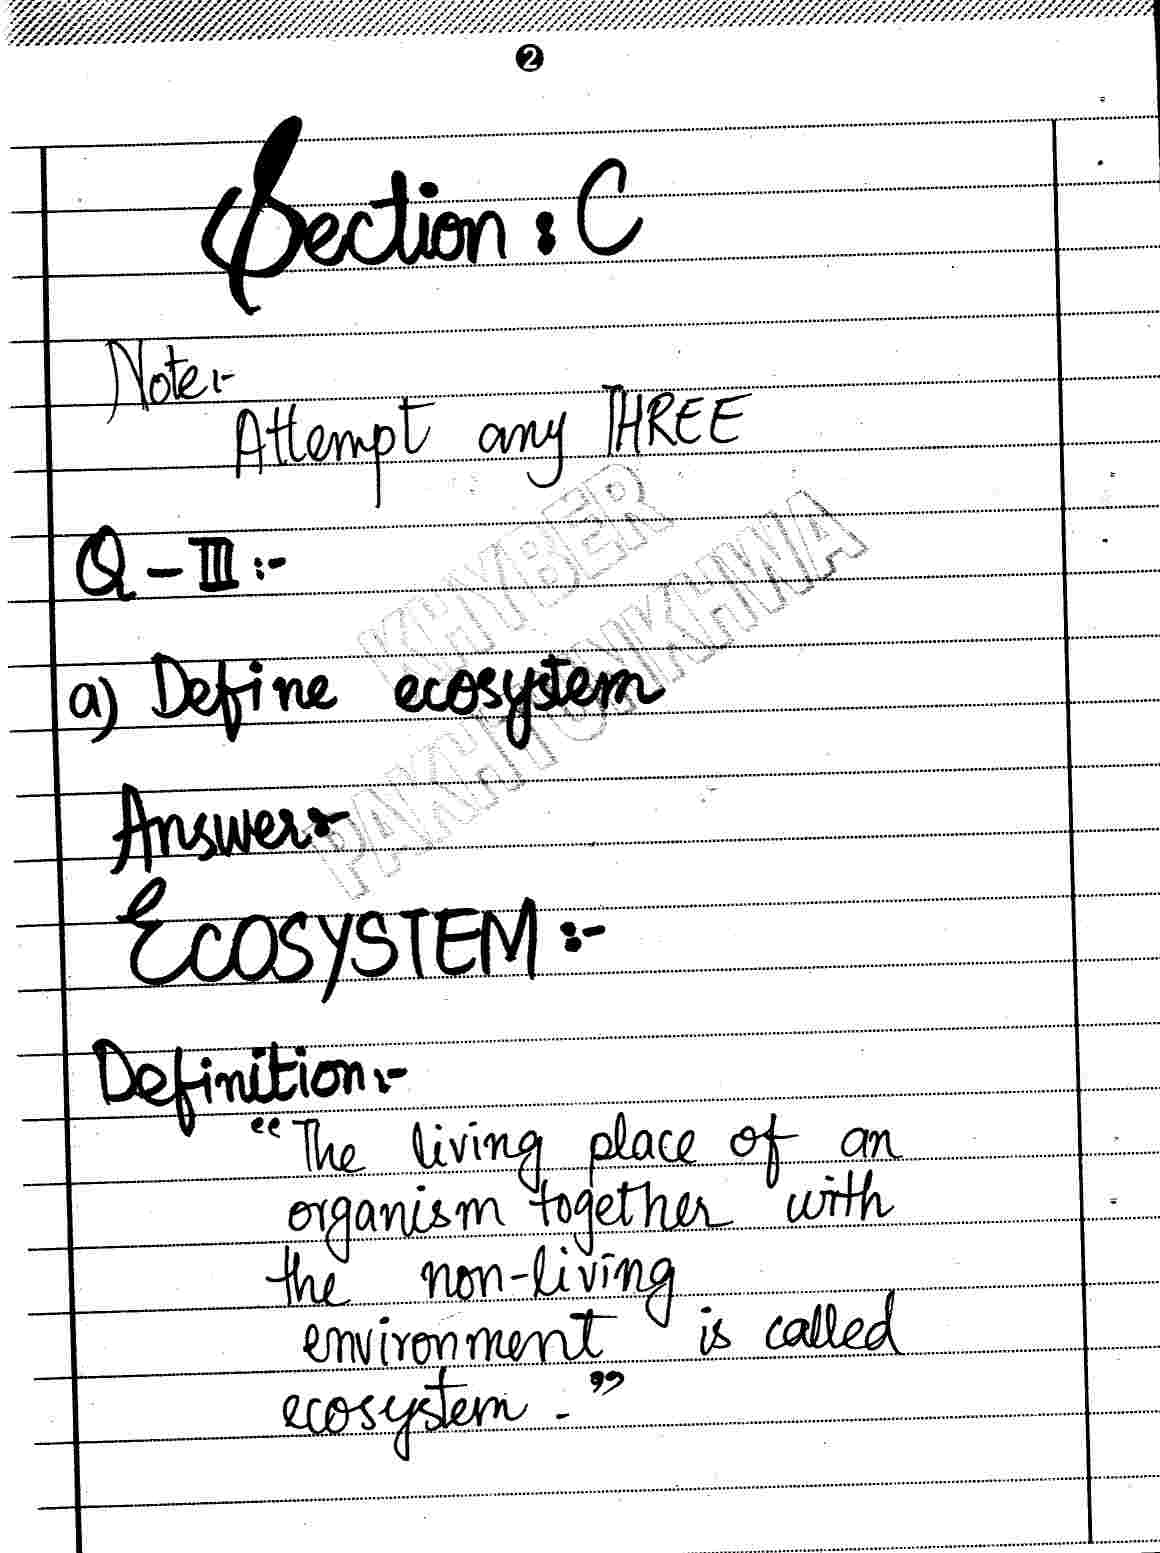 2
Section : C
Note:-
Attempt any THREE
KHYBER
PAKHTUNKHWA
Q - III :-
a) Define ecosystem
Answer:-
ECOSYSTEM :-
Definition:-
"The living place of an
organism together with
the non-living
environment is called
ecosystem."